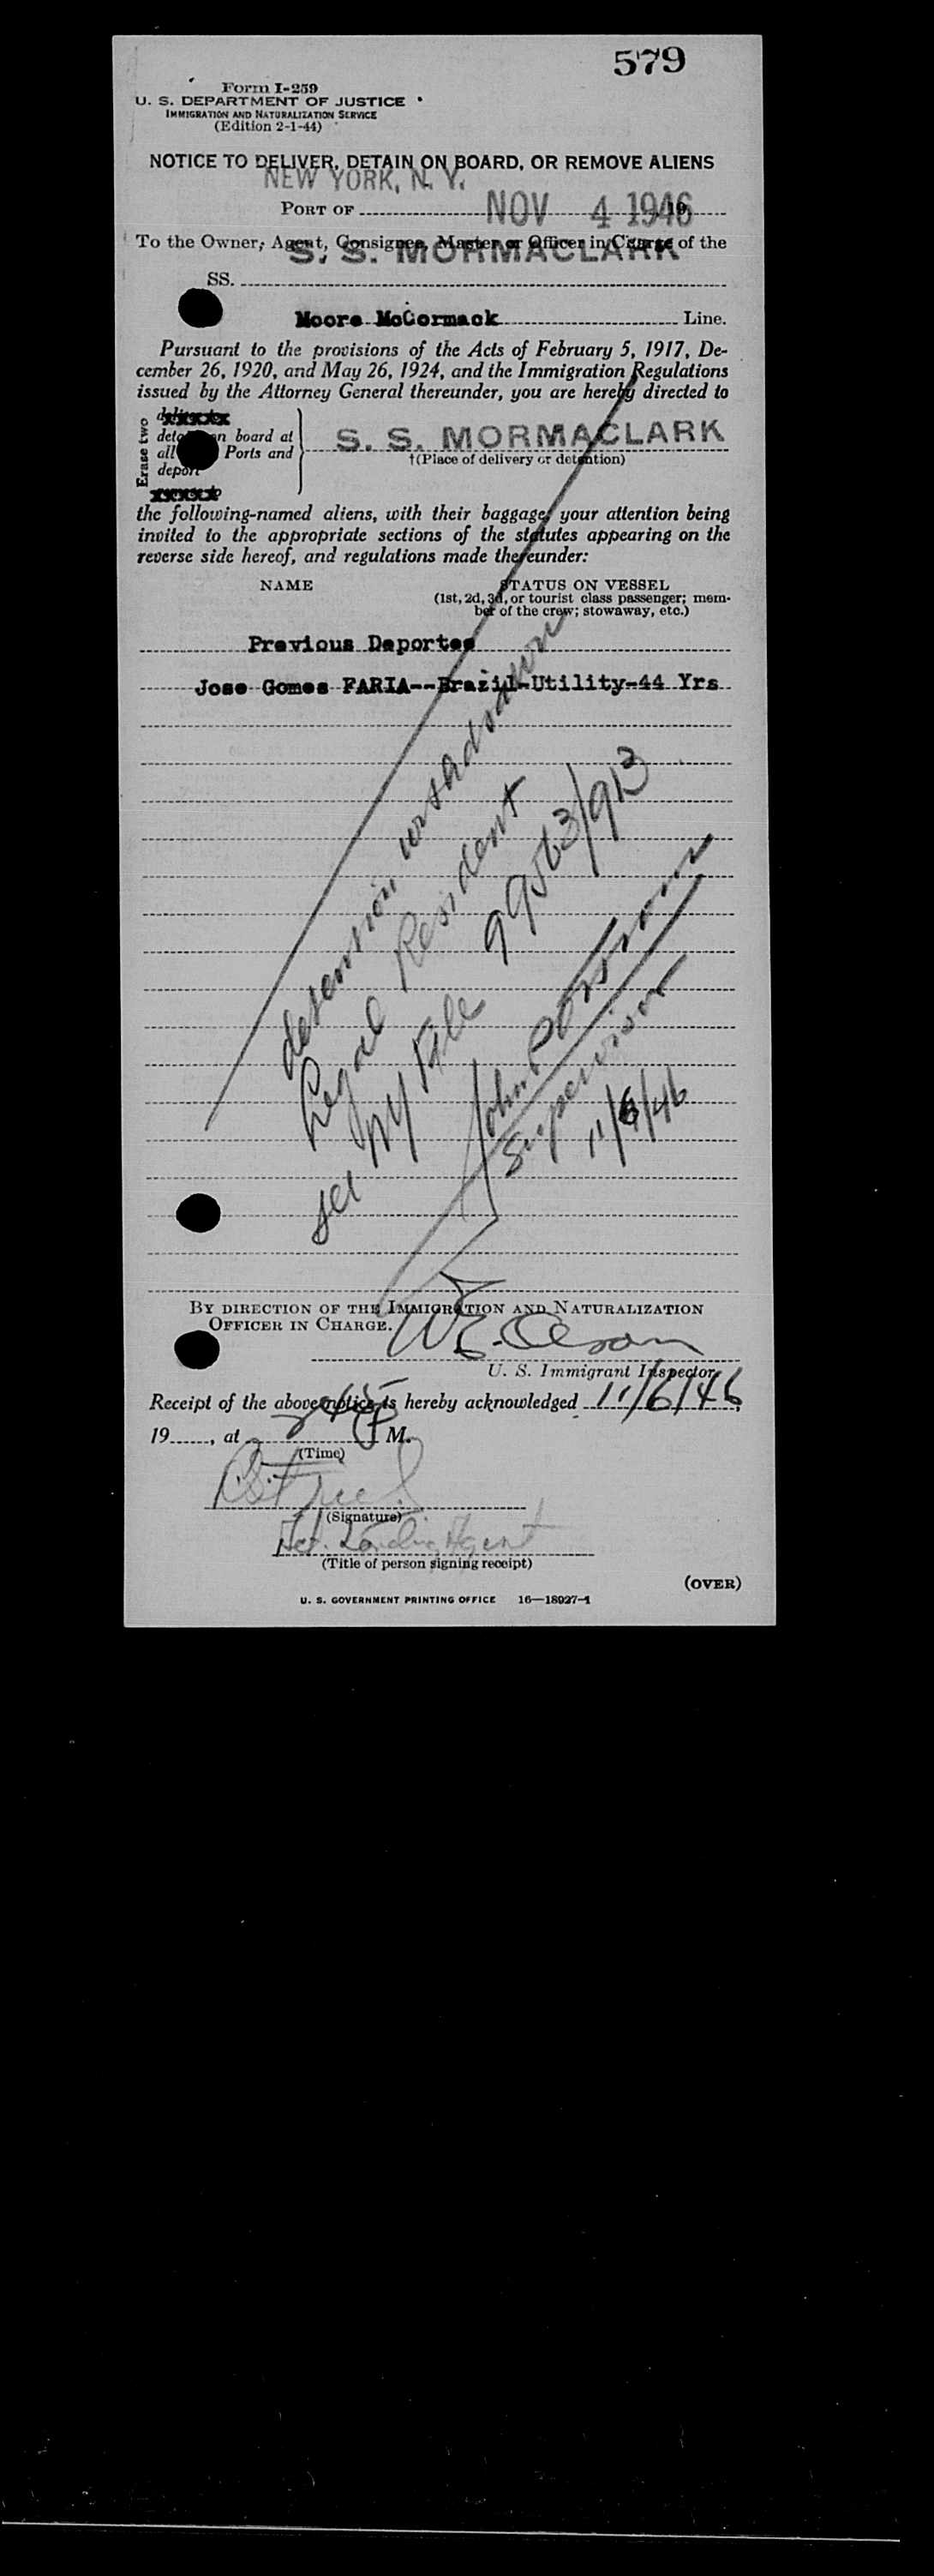 579
Form I-259
U. S. DEPARTMENT OF JUSTICE
IMMIGRATION AND NATURALIZATION SERVICE
(Edition 2-1-44)
NOTICE TO DELIVER, DETAIN ON BOARD, OR REMOVE ALIENS
NEW YORK, N. Y.
PORT OF NOV 4 1946 19
To the Owner, Agent, Consignee, Master or Officer in Charge of the
S. S. MORMACLARK
SS.
Moore McCormack Line.
Pursuant to the provisions of the Acts of February 5, 1917, De-
cember 26, 1920, and May 26, 1924, and the Immigration Regulations
issued by the Attorney General thereunder, you are hereby directed to
Erase two
on board at
all Ports and
deport
S. S. MORMACLARK
†(Place of delivery or detention)
the following-named aliens, with their baggage, your attention being
invited to the appropriate sections of the statutes appearing on the
reverse side hereof, and regulations made thereunder:
NAME STATUS ON VESSEL
(1st, 2d, 3d, or tourist class passenger; mem-
ber of the crew; stowaway, etc.)
Previous Deportee
Jose Gomes FARIA--Brazil-Utility-44 Yrs
detention withdrawn
Legal Resident
see NY File 99563/913
John
Supervisor
11/6/46
BY DIRECTION OF THE IMMIGRATION AND NATURALIZATION
OFFICER IN CHARGE.
U. S. Immigrant Inspector
Receipt of the above notice is hereby acknowledged 11/6/46,
19, at 245 P M.
(Time)
(Signature)
Landing Agent
(Title of person signing receipt)
(OVER)
U. S. GOVERNMENT PRINTING OFFICE 16—18027-1